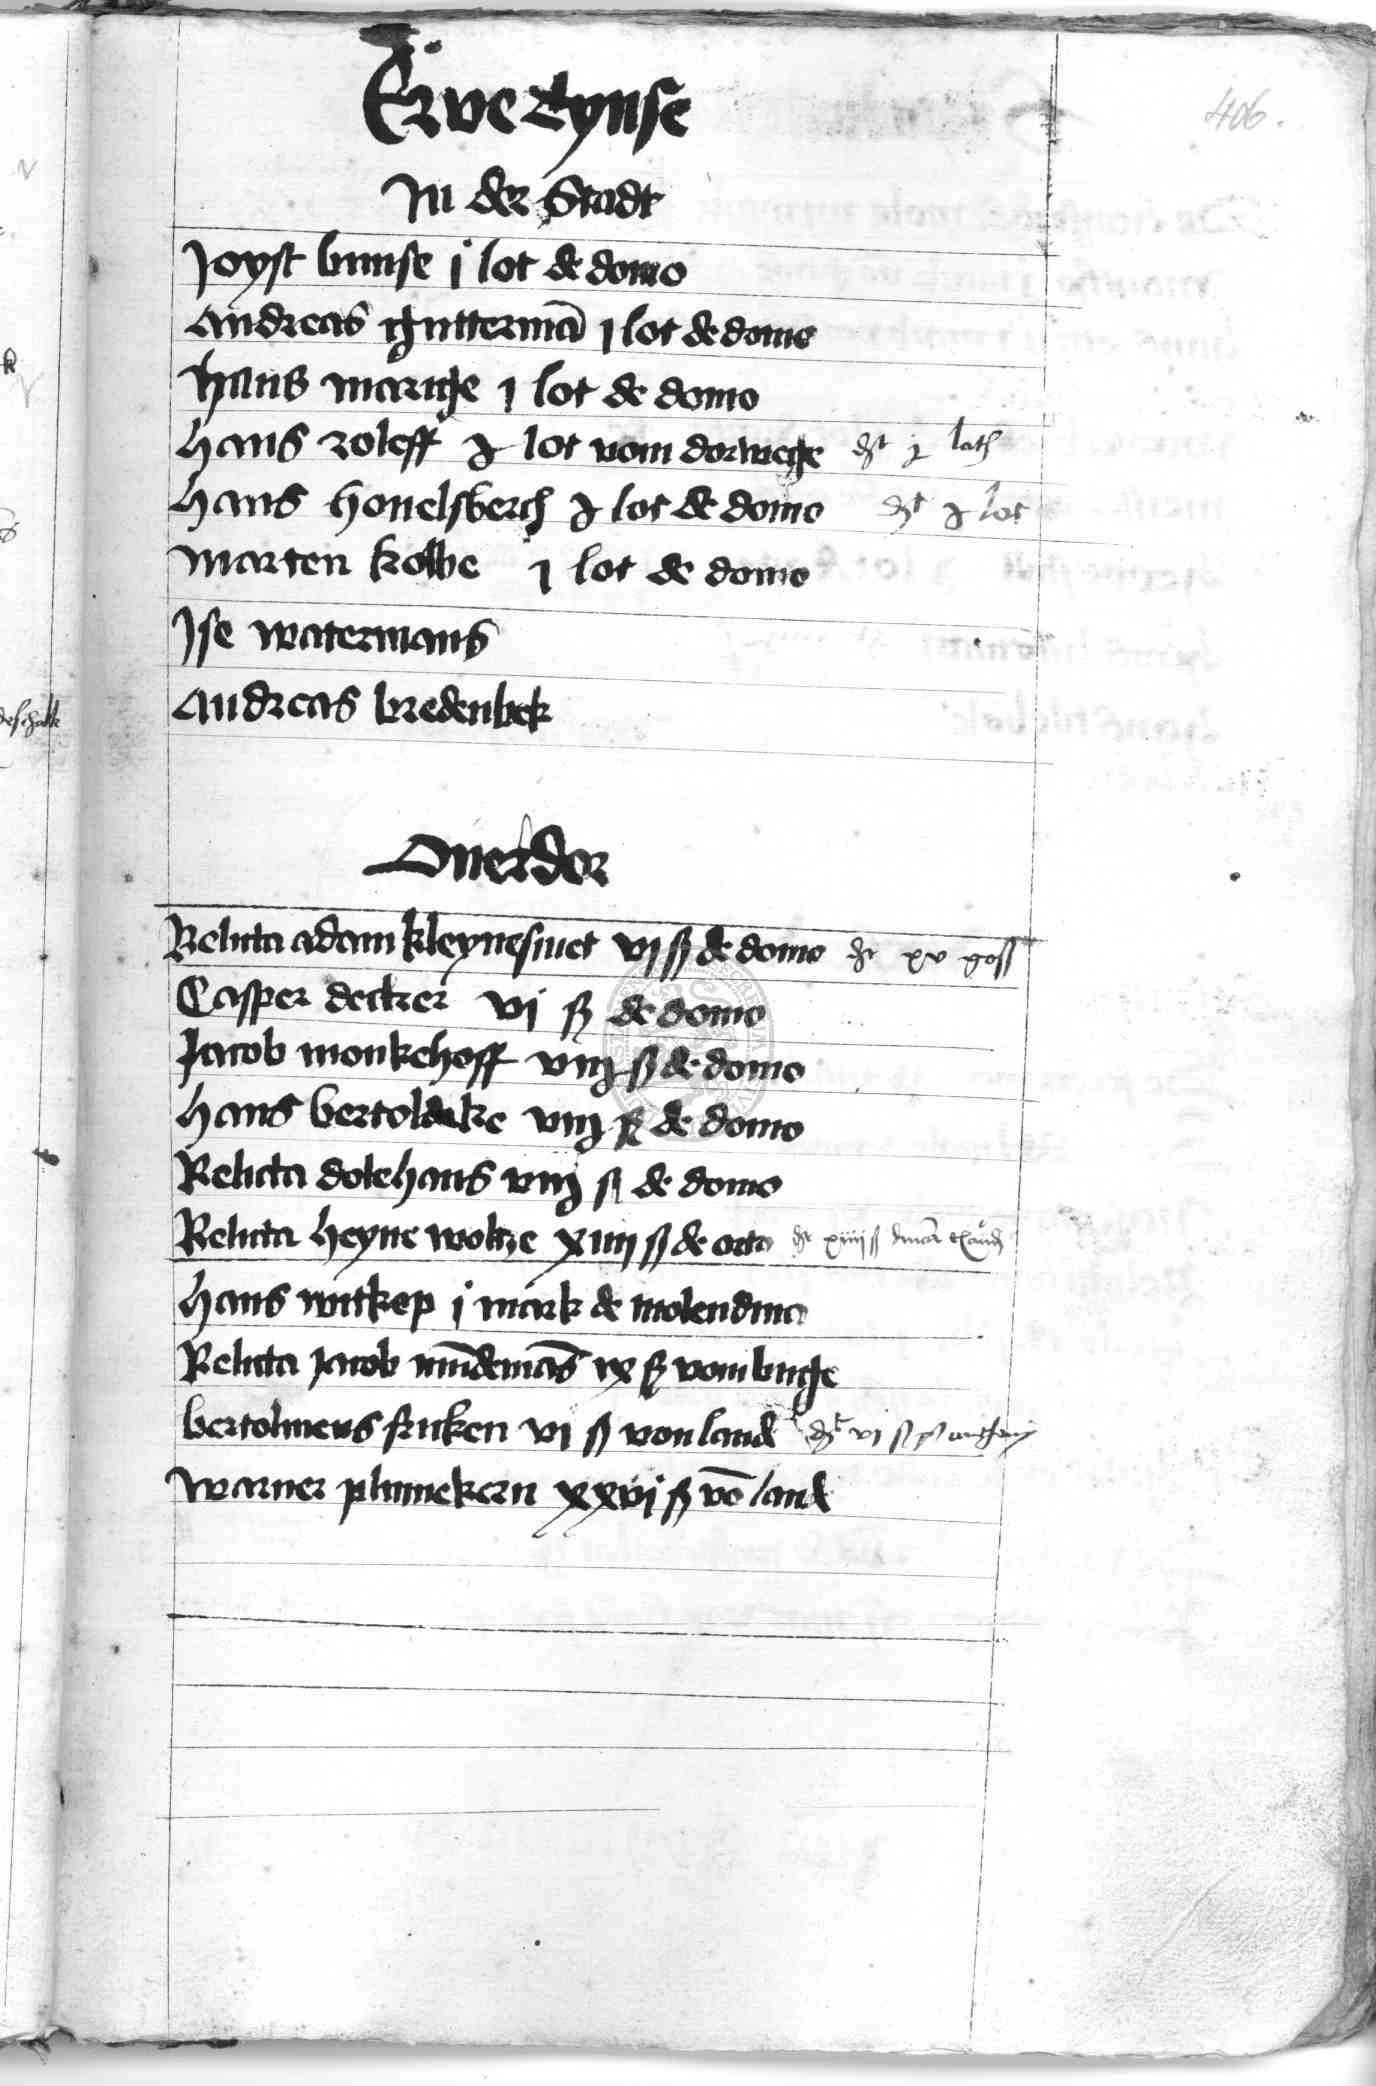 406.
Erve tynse
In der Stadt
Joyst bunse j lot de domo
Andreas gutterman̄ j lot de domo
Hans maricge j lot de domo
Hans roleff j lot vom dorwege dt j loth
Hans honelsberch j lot de domo dt j lot
Marten kolbe j lot de domo
Ise watermans
Andreas bredenbek
Ouerdor
Relicta adam kleynesmet vj ß de domo dt xv goß
Casper decker vj ß de domo
Jacob monkehoff viij ß de domo
Hans bertoldeke viij ß de domo
Relicta dolehans viij ß de domo
Relicta heyne woltze xiiij ß de orto dt xiiij ß
Hans witkop j mark de molendino
Relicta Jacob mūdemās ix ß vom
bertolmeus fricken vj ß von land dt vj ß
Warner plumekern xxvj ß vō land